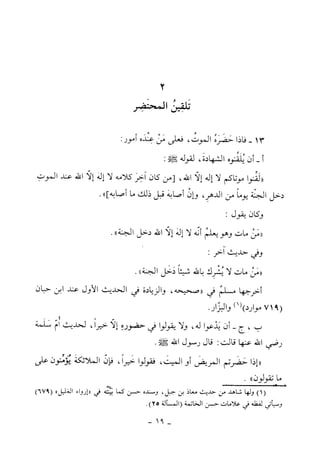 ٢
تَلقينُ المحتَضِر
١٣ - فاذا حَضَرَهُ الموتُ، فعلى مَنْ عِنْدَه أمور:
أ - أن يُلَقِّنوه الشهادةَ، لقوله ﷺ:
«لَقِّنوا موتاكم لا إله إلّا الله، [من كان آخِرَ كلامه لا إلهَ إلّا الله عند الموتِ
دخل الجنّة يوماً من الدهرِ، وإنْ أصابَهُ قبلَ ذلك ما أصابه]».
وكان يقول :
«مَنْ مات وهو يعلمُ أنّه لا إلهَ إلّا الله دخل الجنة».
وفي حديث آخر :
«مَنْ مات لا يُشرِك بالله شيئاً دَخل الجنة».
أخرجها مسلمٌ في «صحيحه»، والزيادة في الحديث الأول عند ابن حبان
(٧١٩ موارد) (١) والبزار.
ب ، ج - أن يَدْعوا له، ولا يقولوا في حضورهِ إلّا خيراً، لحديث أُمّ سَلَمة
رضي الله عنها قالت: قال رسول الله ﷺ.
«إذا حَضَرتم المريضَ أو الميتَ، فقولوا خيراً، فإنّ الملائكة يُؤمِّنون على
ما تقولون» .
(١) ولها شاهد من حديث معاذ بن جبل، وسنده حسن كما بيّنته في «إرواء الغليل» (٦٧٩)
وسيأتي لفظه في علامات حسن الخاتمة (المسألة ٢٥).
- ١٩ -